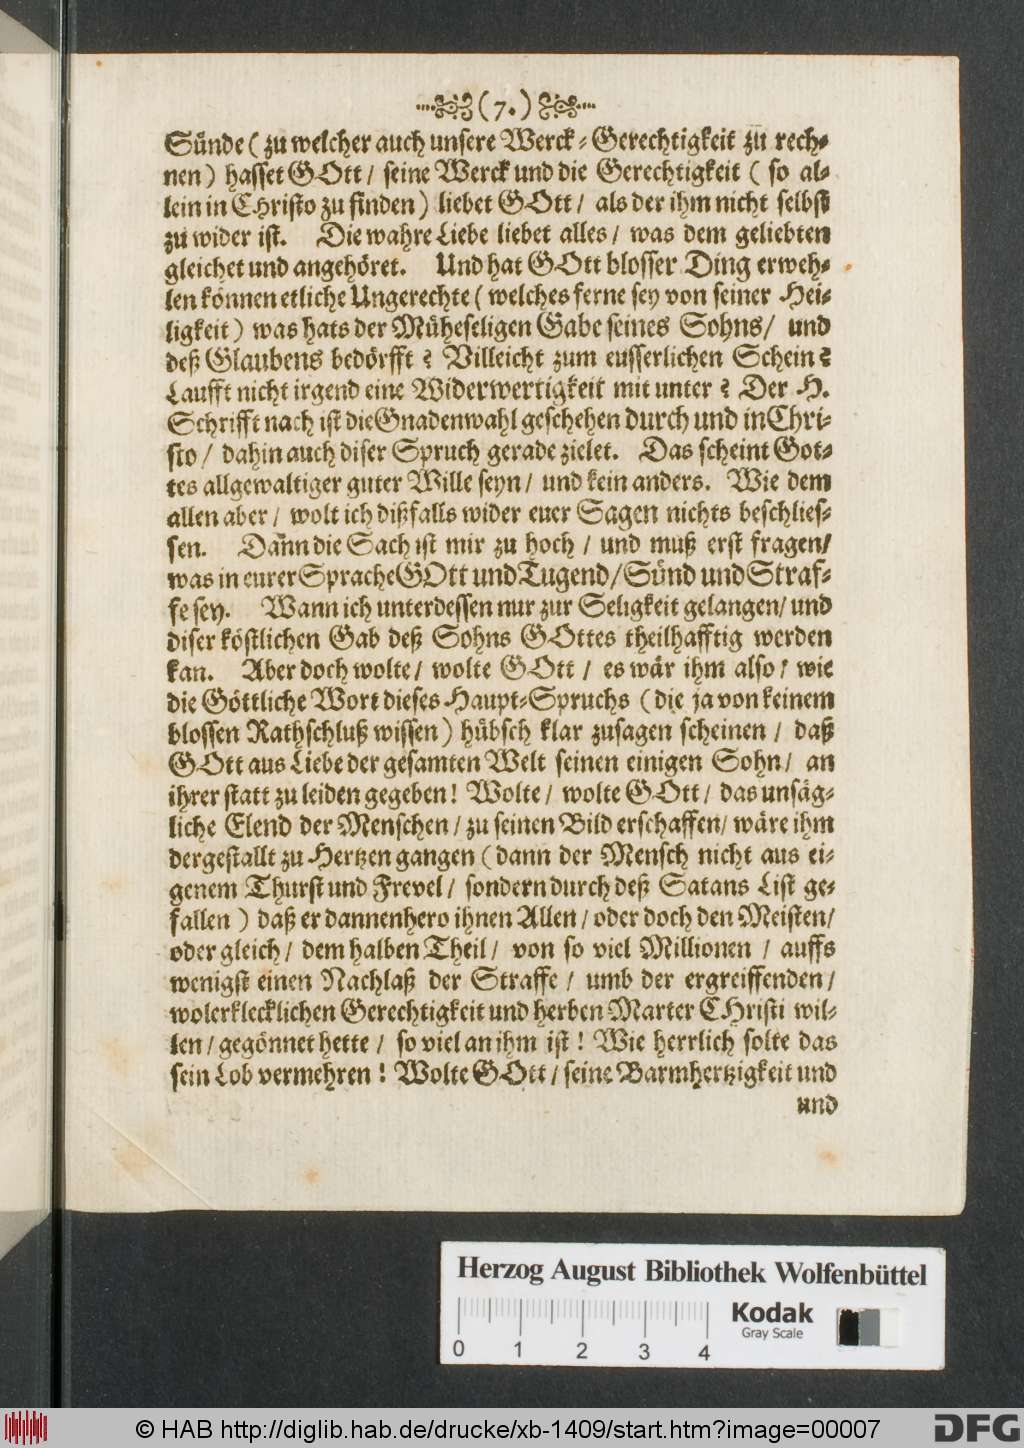 (7.)
Sünde (zu welcher auch unsere Werck-Gerechtigkeit zu rech-
nen) hasset GOtt / seine Werck und die Gerechtigkeit ( so al-
lein in CHristo zu finden) liebet GOtt / als der ihm nicht selbst
zu wider ist. Die wahre Liebe liebet alles / was dem geliebten
gleichet und angehöret. Und hat GOtt blosser Ding erweh-
len können etliche Ungerechte ( welches ferne sey von seiner Hei-
ligkeit) was hats der Müheseligen Gabe seines Sohns / und
deß Glaubens bedörfft? Villeicht zum eusserlichen Schein?
Laufft nicht irgend eine Widerwertigkeit mit unter? Der H.
Schrifft nach ist die Gnadenwahl geschehen durch und in Chri-
sto / dahin auch diser Spruch gerade zielet. Das scheint Got-
tes allgewaltiger guter Wille seyn / und kein anders. Wie dem
allen aber / wolt ich dißfalls wider euer Sagen nichts beschlies-
sen. Dann die Sach ist mir zu hoch / und muß erst fragen/
was in eurer Sprache GOtt und Tugend / Sünd und Straf-
fe sey. Wann ich unterdessen nur zur Seligkeit gelangen / und
diser köstlichen Gab deß Sohns GOttes theilhafftig werden
kan. Aber doch wolte / wolte GOtt / es wär ihm also / wie
die Göttliche Wort dieses Haupt-Spruchs (die ja von keinem
blossen Rathschluß wissen) hübsch klar zusagen scheinen / daß
GOtt aus Liebe der gesamten Welt seinen einigen Sohn / an
ihrer statt zu leiden gegeben! Wolte / wolte GOtt / das unsäg-
liche Elend der Menschen / zu seinen Bild erschaffen / wäre ihm
dergestallt zu Hertzen gangen (dann der Mensch nicht aus ei-
genem Thurst und Frevel / sondern durch deß Satans List ge-
fallen ) daß er dannenhero ihnen Allen / oder doch den Meisten/
oder gleich / dem halben Theil / von so viel Millionen / auffs
wenigst einen Nachlaß der Straffe / umb der ergreiffenden /
wolerklecklichen Gerechtigkeit und herben Marter CHristi wil-
len / gegönnet hette / so viel an ihm ist! Wie herrlich solte das
sein Lob vermehren! Wolte GOtt / seine Barmhertzigkeit und
und
Herzog August Bibliothek Wolfenbüttel
Kodak
Gray Scale
0 1 2 3 4
© HAB http://diglib.hab.de/drucke/xb-1409/start.htm?image=00007
DFG